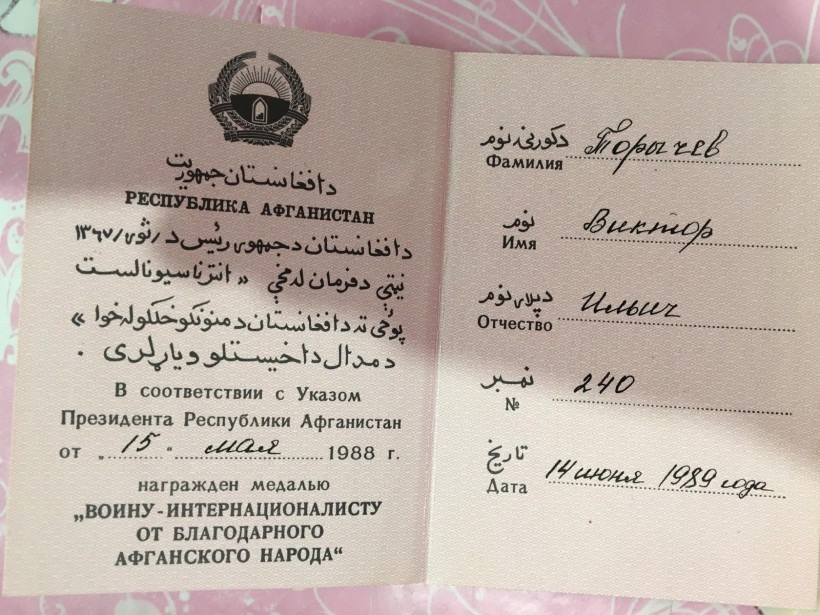 دافغانستان جمهوریت
РЕСПУБЛИКА АФГАНИСТАН
دافغانستان دجمهوری رئیس د /ثور/ ۱۳۶۷
نیټې دفرمان له مخې « انترناسیونالست
پوځی ته دافغانستان دمننګو خلکو له خوا »
دمدال داخیستلو ویاړلری .
В соответствии с Указом
Президента Республики Афганистан
от „ 15 “ мая 1988 г.
награжден медалью
„ВОИНУ-ИНТЕРНАЦИОНАЛИСТУ
ОТ БЛАГОДАРНОГО
АФГАНСКОГО НАРОДА“
دکورنۍ نوم
Фамилия Торычев
نوم
Имя Виктор
دپلار نوم
Отчество Ильич
نمبر
№ 240
تاریخ
Дата 14 июня 1989 года